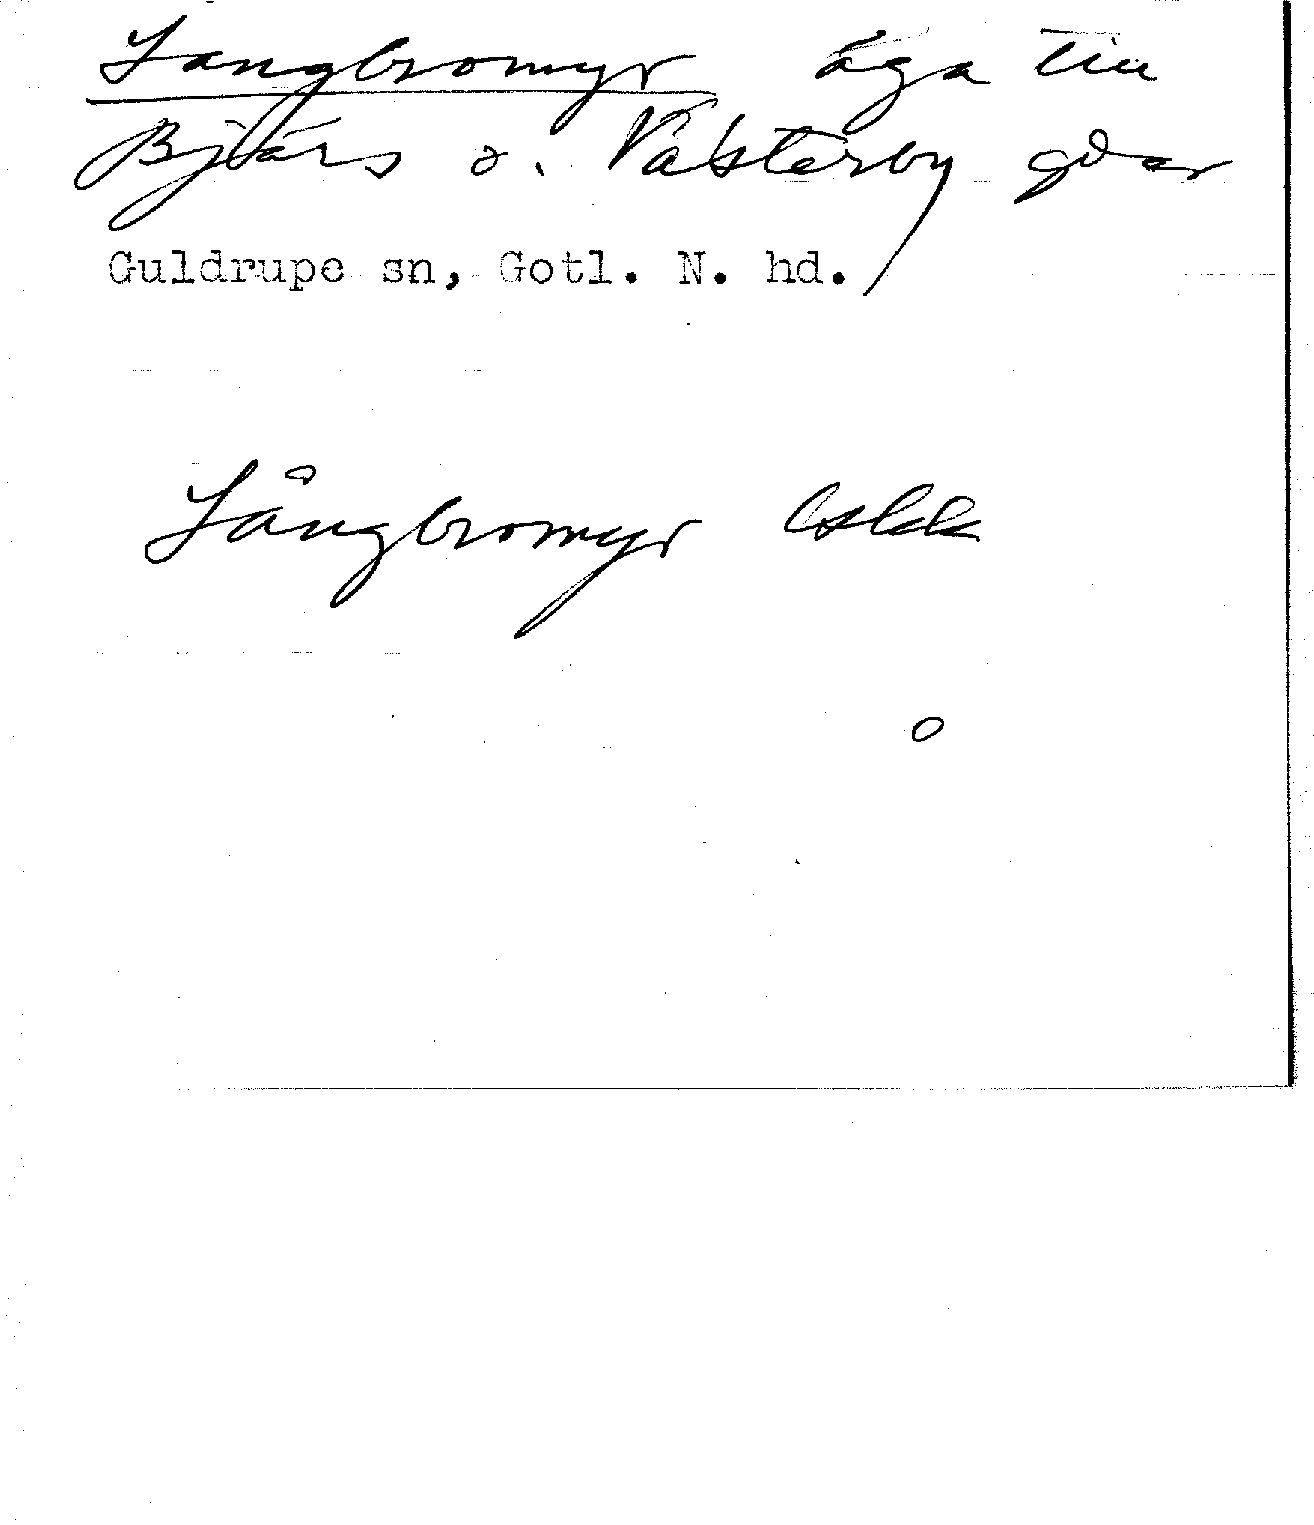 Langbromyr äga till
Bjärs o. Västerby gdar
Guldrupe sn, Gotl. N. hd.
Långbromyr